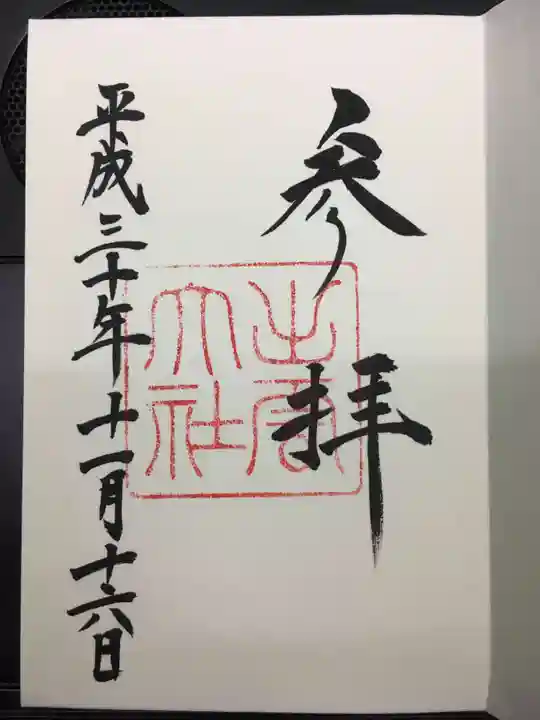 参拝
出雲
大社
平成三十年十一月十六日